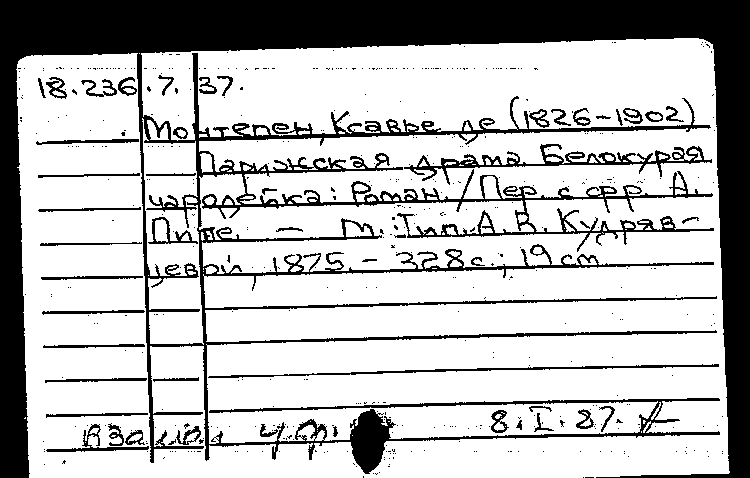 18.236.7.37.
Монтепен, Ксавье де (1826-1902)
Парижская драма. Белокурая
чародейка: Роман. / Пер. с фр. А.
Пипе. – М.: Тип. А. В. Кудряв-
цевой, 1875. – 328 с.; 19 cm
взамен 8.I.87.